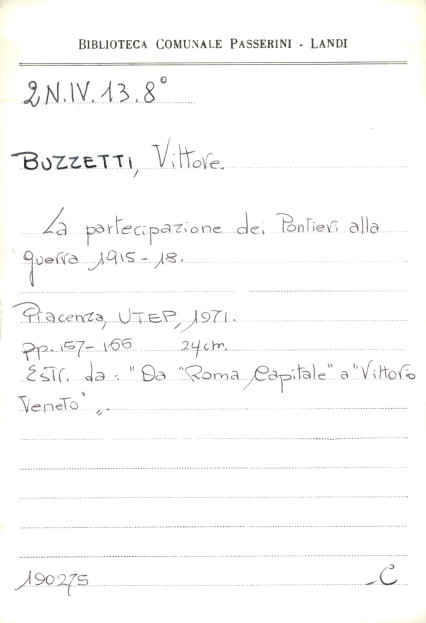 BIBLIOTECA COMUNALE PASSERINI - LANDI
2N.IV.13.8°
BUZZETTI, Vittore.
La partecipazione dei Pontieri alla
guerra 1915-18.
Piacenza, UTEP, 1971.
pp. 157-166 24 cm.
Estr. da: "Da "Roma Capitale" a "Vittorio
Veneto" ".
190275 C